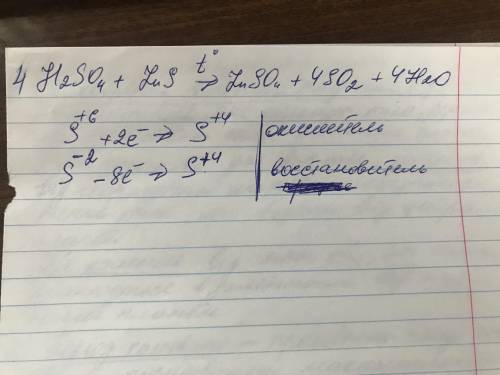 4 H2SO4 + ZnS t° → ZnSO4 + 4SO2 + 4H2O
S+6 +2e- → S+4 | окислитель
S-2 -8e- → S+4 | восстановитель